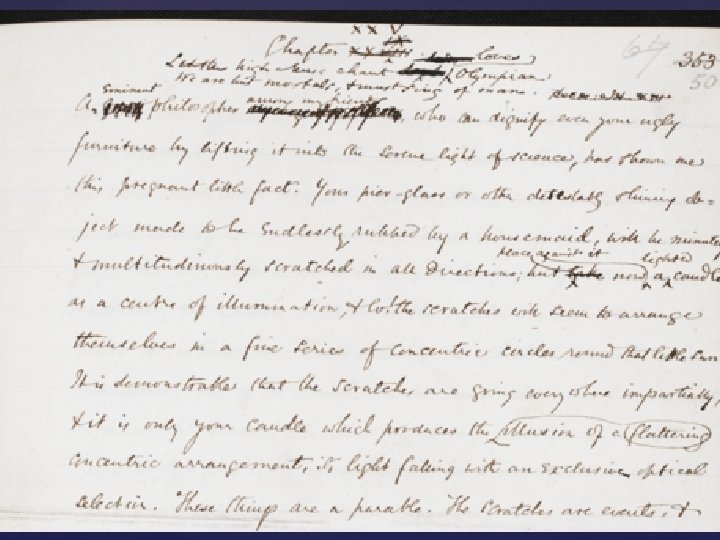 XXV
Chapter
64
353
50
Let the high Muse chant loves Olympian
We are but mortals, & must sing of man.
An Eminent philosopher among my friends, who can dignify even your ugly
furniture by lifting it into the serene light of science, has shown me
this pregnant little fact. Your pier-glass or other detestably shining ob-
ject made to be endlessly rubbed by a housemaid, will be minutely
& multitudinously scratched in all directions; but place against it now a lighted candle
as a centre of illumination, & lo! the scratches will seem to arrange
themselves in a fine series of concentric circles round that little sun
It is demonstrable that the scratches are going everywhere impartially,
& it is only your candle which produces the illusion of a flattering
concentric arrangement, its light falling with an exclusive optical
selection. These things are a parable. The scratches are events, &